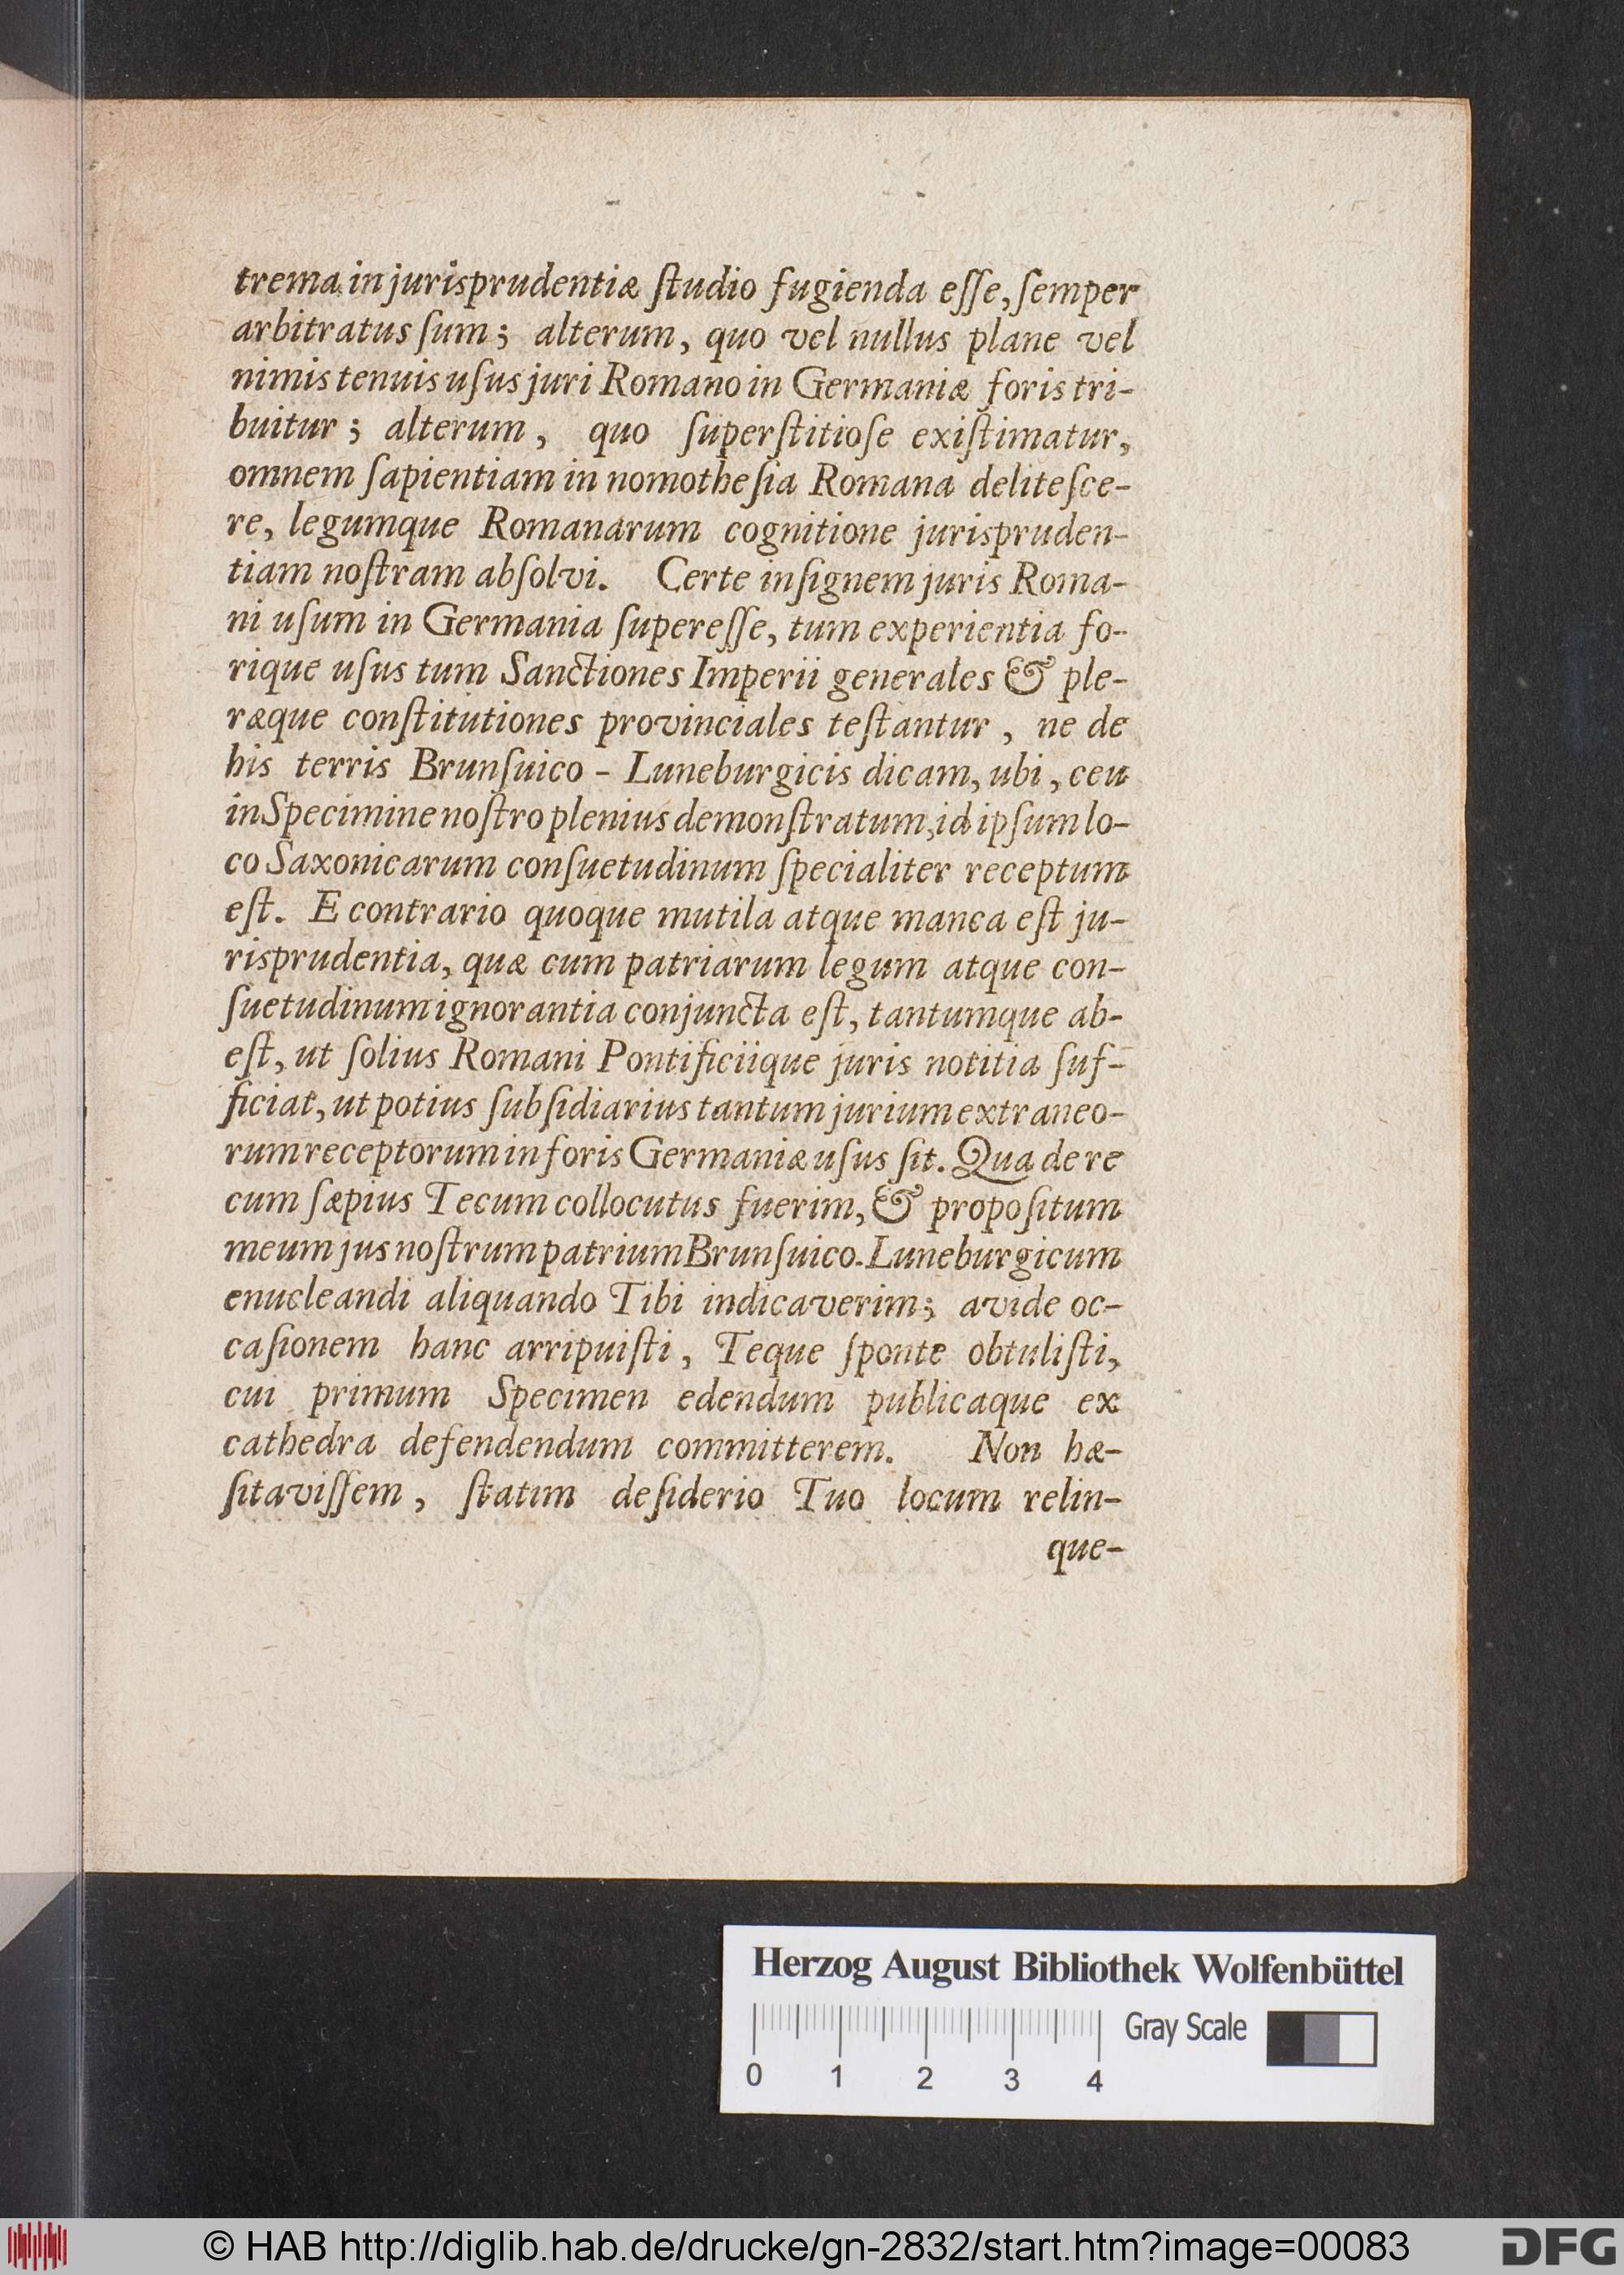 trema in jurisprudentiæ ſtudio fugienda eſſe, ſemper
arbitratus ſum; alterum, quo vel nullus plane vel
nimis tenuis uſus juri Romano in Germaniæ foris tri-
buitur; alterum, quo ſuperſtitioſe exiſtimatur,
omnem ſapientiam in nomotheſia Romana deliteſce-
re, legumque Romanarum cognitione jurispruden-
tiam noſtram abſolvi. Certe inſignem juris Roma-
ni uſum in Germania ſupereſſe, tum experientia fo-
rique uſus tum Sanctiones Imperii generales & ple-
ræque conſtitutiones provinciales teſtantur, ne de
his terris Brunſuico - Luneburgicis dicam, ubi, ceu
in Specimine noſtro plenius demonſtratum, id ipſum lo-
co Saxonicarum conſuetudinum ſpecialiter receptum
eſt. E contrario quoque mutila atque manca eſt ju-
risprudentia, quæ cum patriarum legum atque con-
ſuetudinum ignorantia conjuncta eſt, tantumque ab-
eſt, ut ſolius Romani Pontificiique juris notitia ſuf-
ficiat, ut potius ſubſidiarius tantum jurium extraneo-
rum receptorum in foris Germaniæ uſus ſit. Qua de re
cum ſæpius Tecum collocutus fuerim, & propoſitum
meum jus noſtrum patrium Brunſuico-Luneburgicum
enucleandi aliquando Tibi indicaverim; avide oc-
caſionem hanc arripuiſti, Teque ſponte obtuliſti,
cui primum Specimen edendum publicaque ex
cathedra defendendum committerem. Non hæ-
ſitaviſſem, ſtatim deſiderio Tuo locum relin-
que-
Herzog August Bibliothek Wolfenbüttel
Gray Scale
0 1 2 3 4
© HAB http://diglib.hab.de/drucke/gn-2832/start.htm?image=00083
DFG